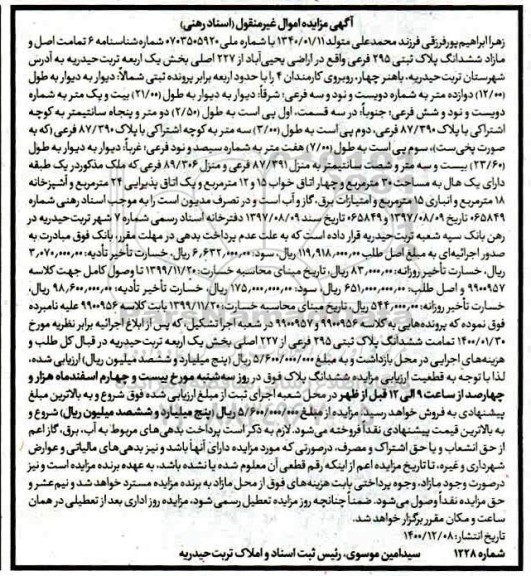 آگهی مزایده اموال غیرمنقول (اسناد رهنی)
زهرا ابراهیم پورفرزقی فرزند محمدعلی متولد ۱۳۴۰/۰۱/۱۱ با شماره ملی ۰۷۰۳۵۰۵۹۲۰ شماره شناسنامه ۶ تمامت اصل و
مازاد ششدانگ پلاک ثبتی ۲۹۵ فرعی واقع در اراضی یحیی‌آباد از ۲۲۷ اصلی بخش یک اربعه تربت‌حیدریه به آدرس
شهرستان تربت حیدریه، باهنر چهار، روبروی کارمندان ۴ را با حدود اربعه برابر پرونده ثبتی شمالاً: دیوار به دیوار به طول
(۱۲/۰۰) دوازده متر به شماره دویست و نود و سه فرعی؛ شرقاً: دیوار به دیوار به طول (۲۱/۰۰) بیست و یک متر به شماره
دویست و نود و شش فرعی؛ جنوباً: در سه قسمت، اول پی است به طول (۲/۵۰) دو متر و پنجاه سانتیمتر به کوچه
اشتراکی با پلاک ۸۷/۳۹۰ فرعی، دوم پی است به طول (۳/۰۰) سه متر به کوچه اشتراکی با پلاک ۸۷/۳۹۰ فرعی (که به
صورت پخی‌ست)، سوم پی است به طول (۷/۰۰) هفت متر به شماره سیصد و نود فرعی؛ غرباً: دیوار به دیوار به طول
(۲۳/۶۰) بیست و سه متر و شصت سانتیمتر به منزل ۸۷/۳۹۱ فرعی و منزل ۸۹/۳۰۶ فرعی که ملک مذکور در یک طبقه
دارای یک هال به مساحت ۲۰ مترمربع و چهار اتاق خواب ۱۵ و ۱۲ مترمربع و یک اتاق پذیرایی ۲۴ مترمربع و آشپزخانه
۱۸ مترمربع و انباری ۱۵ مترمربع و امتیازات برق، گاز و آب است و در تصرف مدیون است را به موجب اسناد رهنی شماره
۰۶۵۸۴۹ تاریخ ۱۳۹۷/۰۸/۰۹ و ۰۶۵۸۴۹ تاریخ سند ۱۳۹۷/۰۸/۰۹ دفترخانه اسناد رسمی شماره ۷ شهر تربت‌حیدریه در
رهن بانک سپه شعبه تربت‌حیدریه قرار داده است که به علت عدم پرداخت بدهی در مهلت مقرر، بانک فوق مبادرت به
صدور اجرائیه‌ای به مبلغ اصل طلب ۱۱۹,۹۱۸,۰۰۰,۰۰ ریال، سود: ۶,۶۳۲,۰۰۰,۰۰ ریال، خسارت تأخیر تأدیه: ۳,۰۷۰,۰۰۰,۰۰
ریال، خسارت تأخیر روزانه: ۸۳,۰۰۰,۰۰ ریال، تاریخ مبنای محاسبه خسارت: ۱۳۹۹/۱۱/۲۰ تا وصول کامل جهت کلاسه
۹۹۰۰۹۵۷ و اصل طلب: ۶۵۱,۰۰۰,۰۰۰,۰۰ ریال، سود: ۱۷۵,۰۰۰,۰۰۰,۰۰ ریال، خسارت تأخیر تأدیه: ۹۸,۶۰۰,۰۰۰,۰۰ ریال،
خسارت تأخیر روزانه: ۵۴۴,۰۰۰,۰۰ ریال، تاریخ مبنای محاسبه خسارت: ۱۳۹۹/۱۱/۲۰ بابت کلاسه ۹۹۰۰۹۵۶ علیه نامبرده
فوق نموده که پرونده‌هایی به کلاسه ۹۹۰۰۹۵۶ و ۹۹۰۰۹۵۷ در شعبه اجرا تشکیل، که پس از ابلاغ اجرائیه برابر نظریه مورخ
۱۴۰۰/۰۱/۳۰ تمامت ششدانگ پلاک ثبتی ۲۹۵ فرعی از ۲۲۷ اصلی بخش یک اربعه تربت‌حیدریه در قبال کل طلب و
هزینه‌های اجرایی در محل بازداشت و به مبلغ ۵/۶۰۰/۰۰۰/۰۰۰ ریال (پنج میلیارد و ششصد میلیون ریال) ارزیابی شده،
لذا با توجه به قطعیت ارزیابی مزایده ششدانگ پلاک فوق در روز سه‌شنبه مورخ بیست و چهارم اسفندماه هزار و
چهارصد از ساعت ۹ الی ۱۲ قبل از ظهر در محل شعبه اجرای ثبت از مبلغ ارزیابی شده فوق شروع و به بالاترین مبلغ
پیشنهادی به فروش خواهد رسید. مزایده از مبلغ ۵/۶۰۰/۰۰۰/۰۰۰ ریال (پنج میلیارد و ششصد میلیون ریال) شروع و
به بالاترین قیمت پیشنهادی نقداً فروخته می‌شود. لازم به ذکر است پرداخت بدهی‌های مربوط به آب، برق، گاز اعم
از حق انشعاب و یا حق اشتراک و مصرف، درصورتی که مورد مزایده دارای آنها باشد و نیز بدهی‌های مالیاتی و عوارض
شهرداری و غیره، تا تاریخ مزایده اعم از اینکه رقم قطعی آن معلوم شده یا نشده باشد، به عهده برنده مزایده است و نیز
درصورت وجود مازاد، وجوه پرداختی بابت هزینه‌های فوق از محل مازاد به برنده مزایده مسترد خواهد شد و نیم‌عشر و
حق مزایده نقداً وصول می‌شود. ضمناً چنانچه روز مزایده تعطیل رسمی شود، مزایده روز اداری بعد از تعطیلی در همان
ساعت و مکان مقرر برگزار خواهد شد.
تاریخ انتشار: ۱۴۰۰/۱۲/۰۸
شماره ۱۲۲۸ سیدامین موسوی، رئیس ثبت اسناد و املاک تربت حیدریه